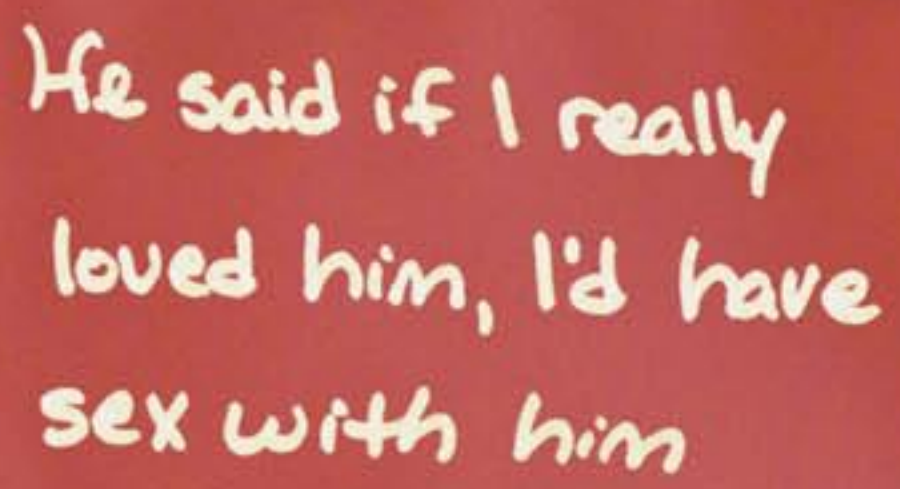 He said if I really
loved him, I'd have
sex with him